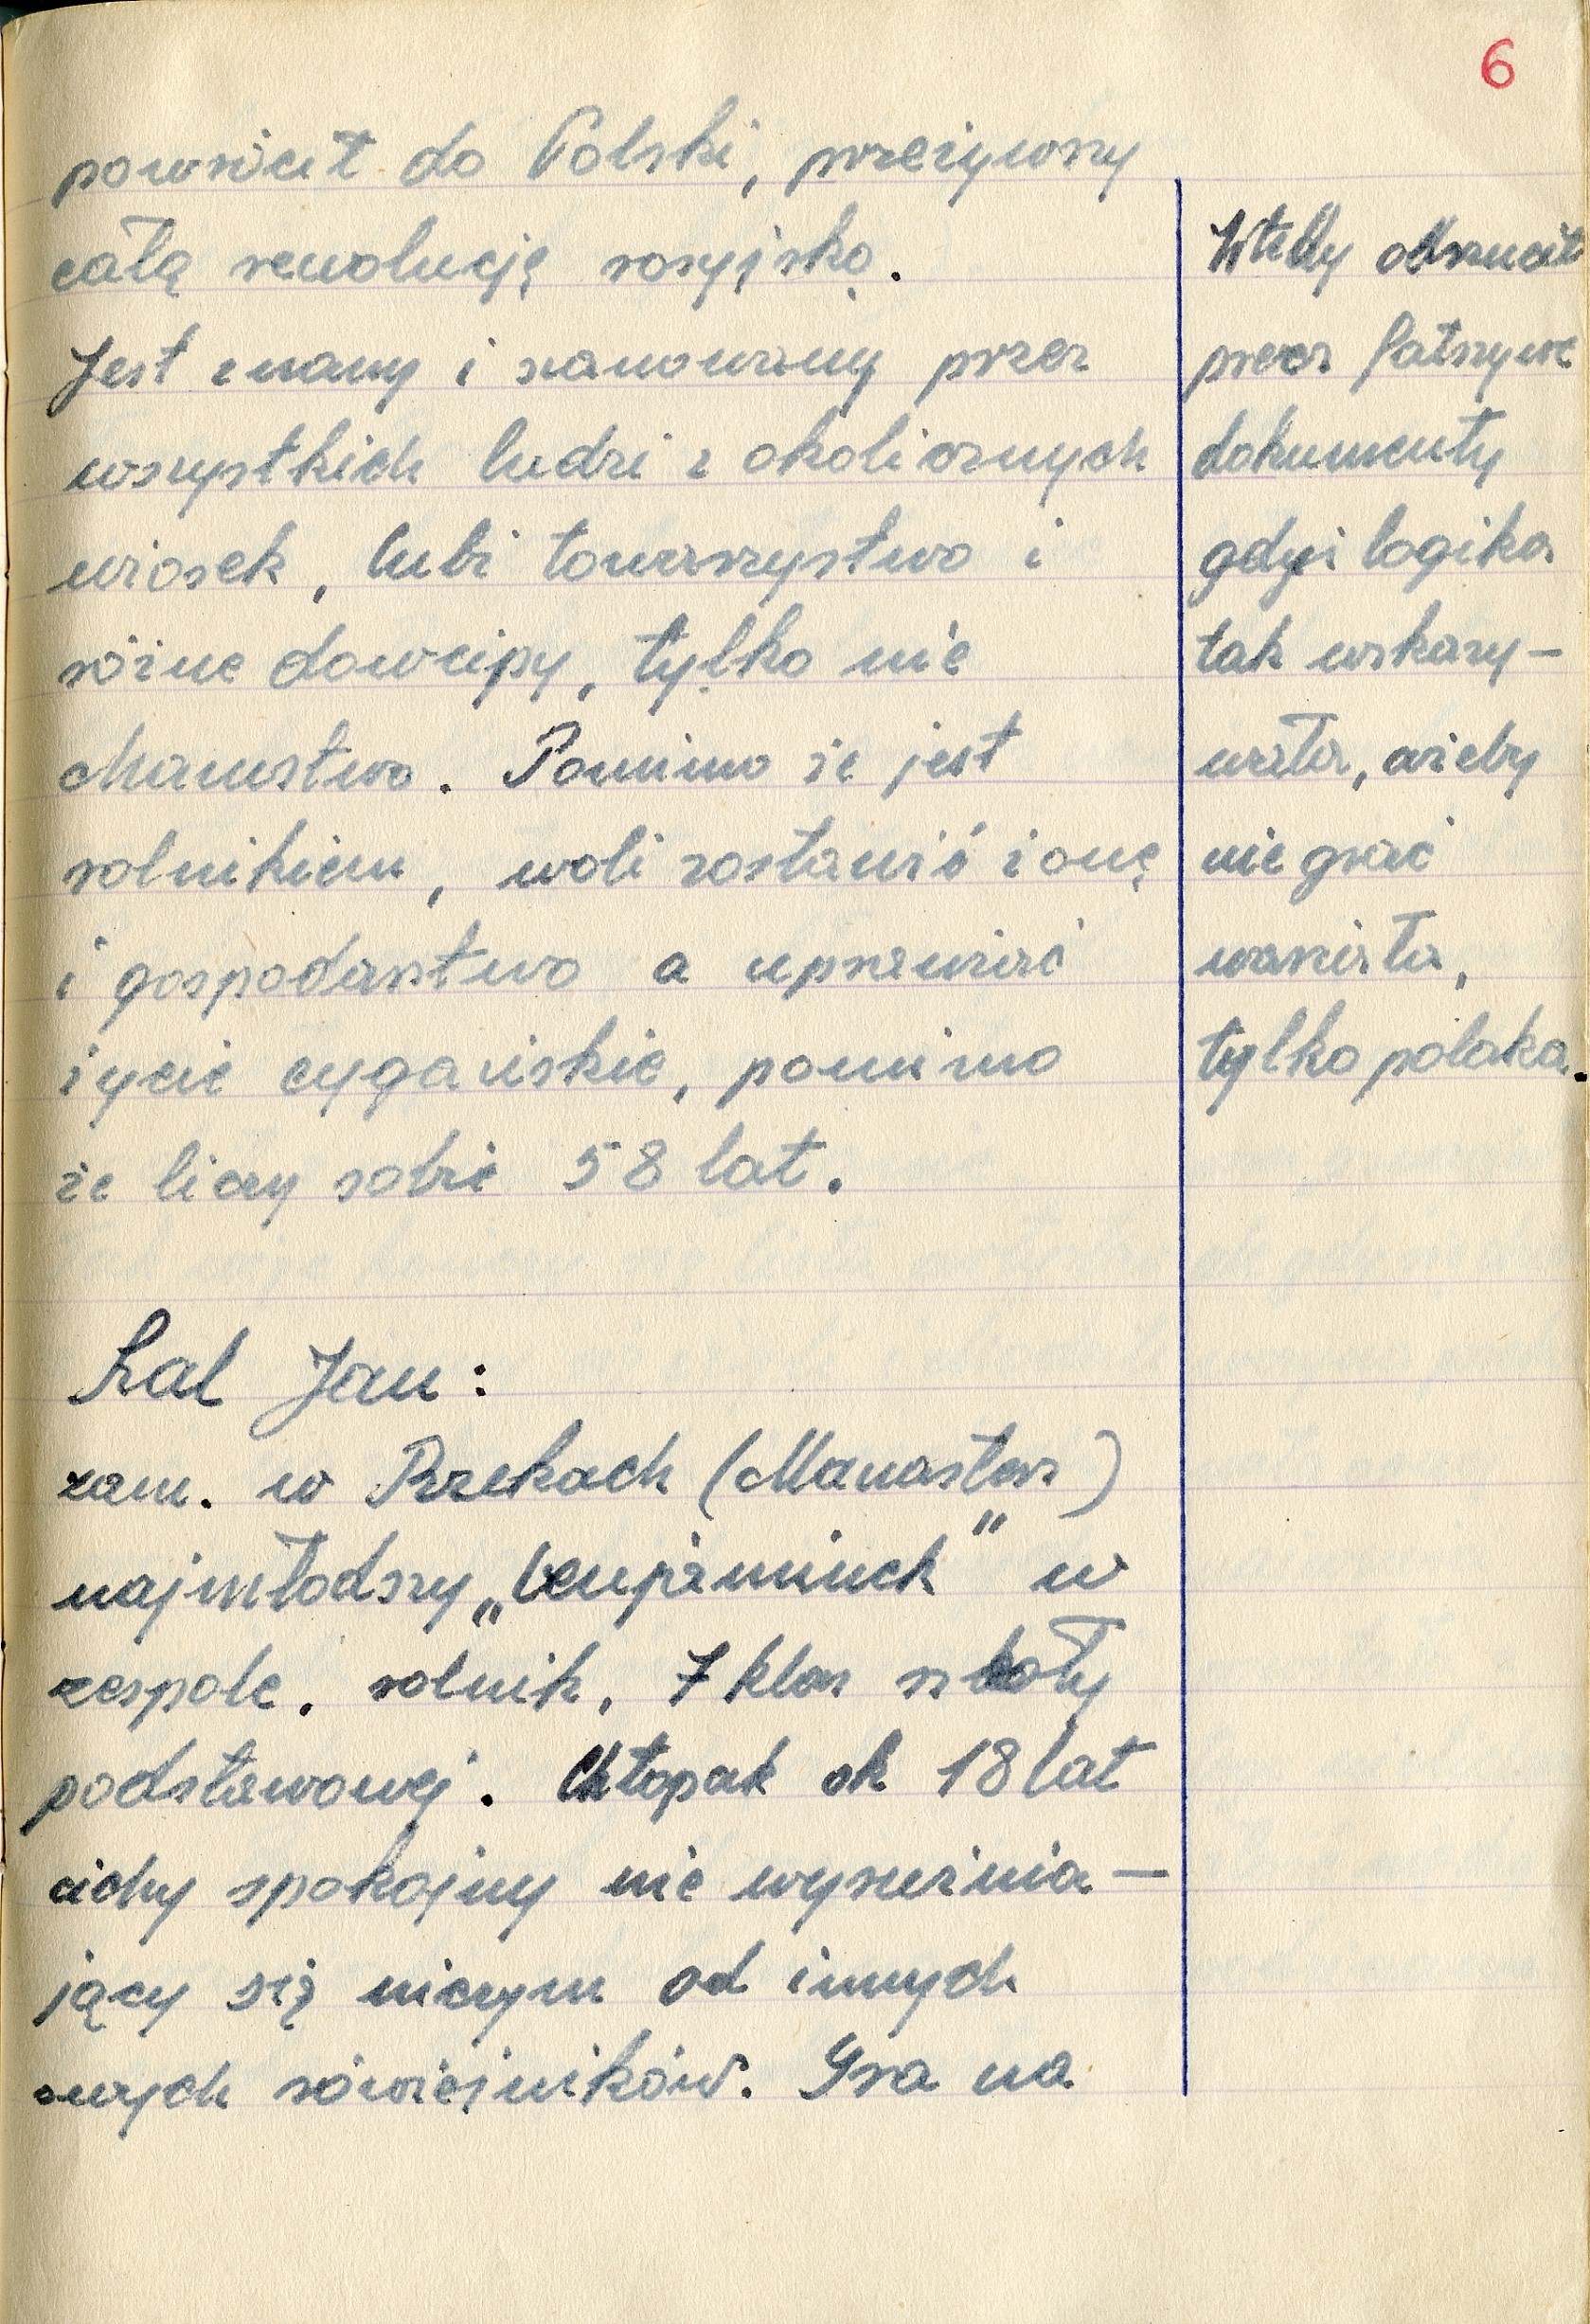 6
powrócił do Polski, przeżywszy
całą rewolucję rosyjską.
Jest znany i szanowany przez
wszystkich ludzi z okolicznych
wiosek, lubi towarzystwo i
różne dowcipy, tylko nie
chamstwo. Pomimo że jest
rolnikiem, woli zostawić żonę
i gospodarstwo a uprawiać
życie cygańskie, pomimo
że liczy sobie 58 lat.
Żal Jan:
zam. w Rzekach (Manasterz)
najmłodszy „benjaminek" w
zespole. rolnik, 7 klas szkoły
podstawowej. Chłopak ok 18 lat
cichy spokojny nie wyróżnia-
jący się niczym od innych
rówieśników. Gra na
Wtedy
przez fałszywe
dokumenty
gdyż logika
tak wskazy-
wała, ażeby
nie grać
wariata,
tylko polaka.